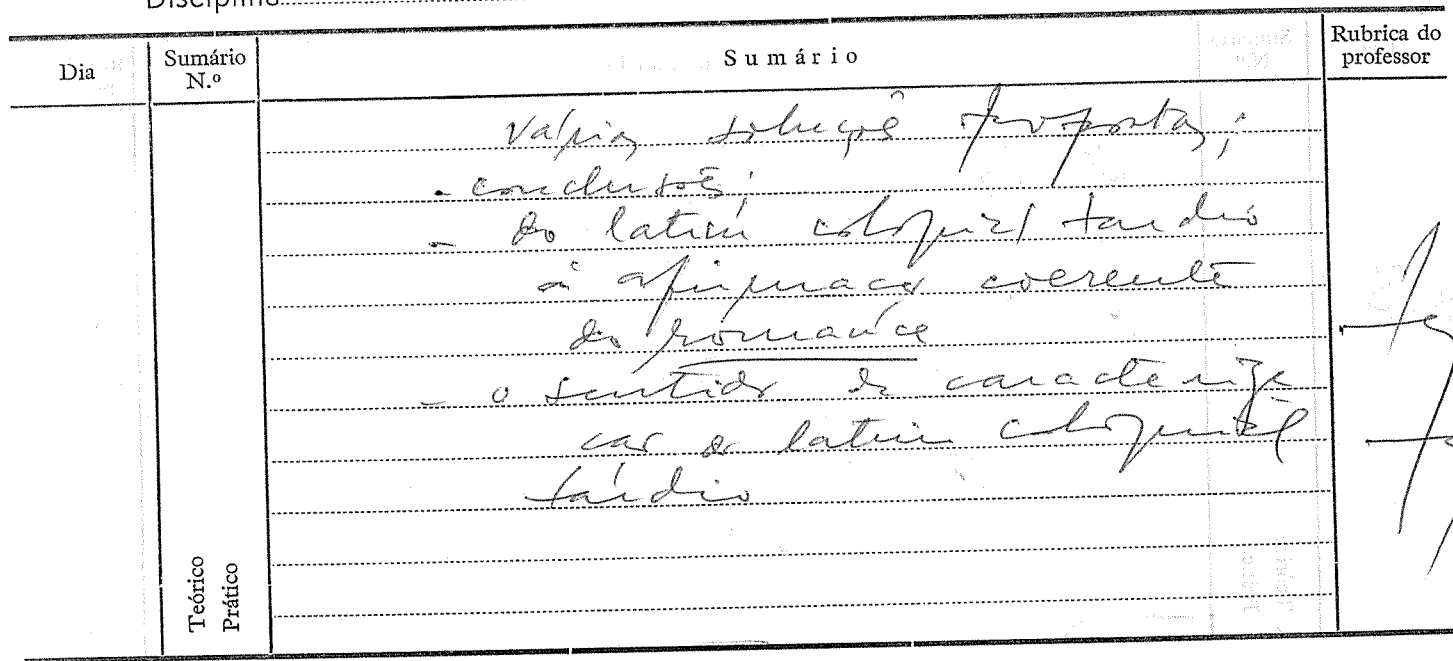 Disciplina
Dia
Sumário N.º
Sumário
Rubrica do professor
várias soluções propostas;
- conclusões;
- do latim coloquial tardio
à afirmação coerente
do romance
- o sentido da caracteriza
ção do latim coloquial
tardio
Teórico
Prático